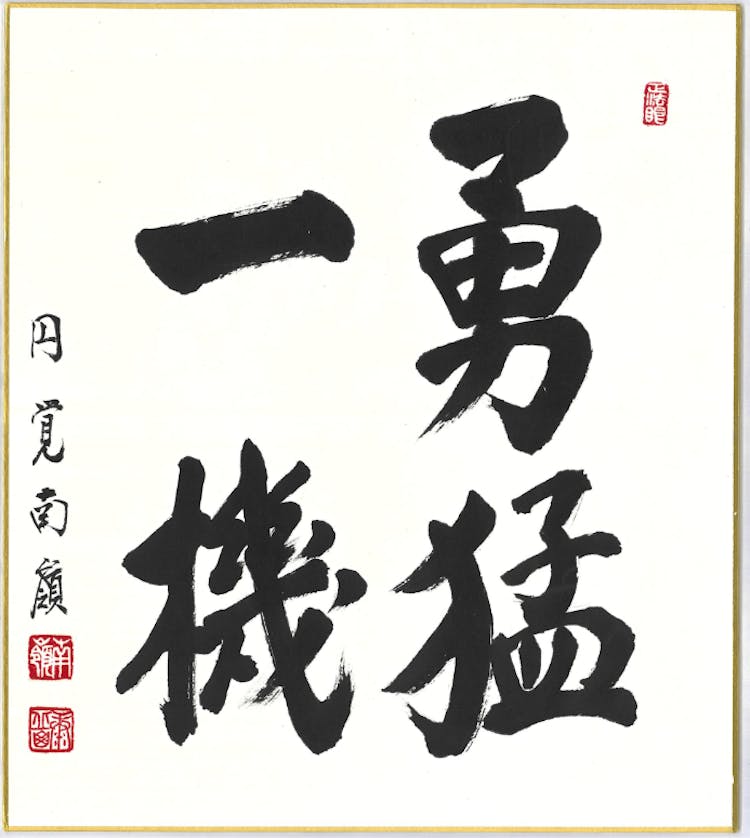 勇猛
一機
円覚南嶺
南嶺